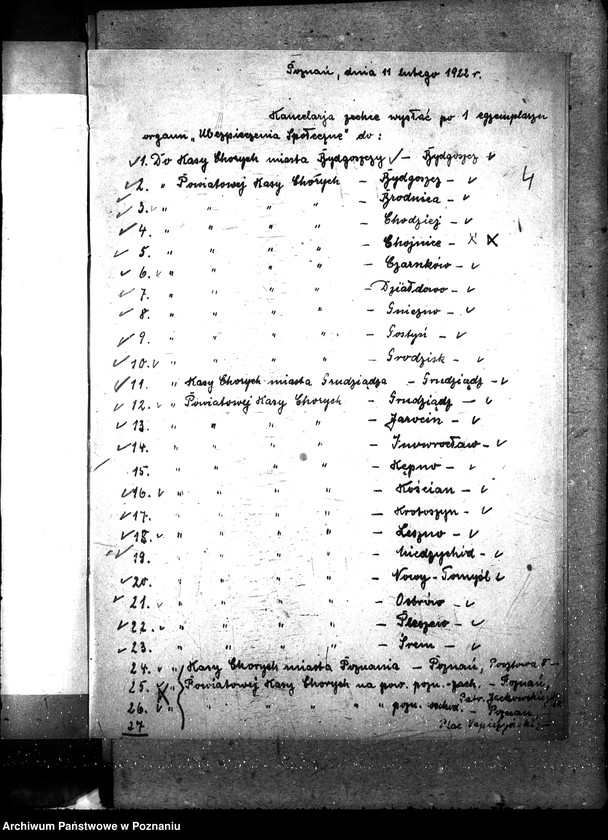 Poznań, dnia 11 lutego 1922 r.
Kancelarja zechce wysłać po 1 egzemplarzu
organu „Ubezpieczenia Społeczne" do:
✓ 1. Do Kasy Chorych miasta Bydgoszczy ✓ — Bydgoszcz ✓
✓ 2. " Powiatowej Kasy Chorych — Bydgoszcz — ✓ 4
✓ 3. ✓ " " " " — Brodnica — ✓
✓ 4. " " " " — Chodzież — ✓
✓ 5. " " " " — Chojnice — X X
✓ 6. ✓ " " " " — Czarnków — ✓
✓ 7. " " " " — Działdowo — ✓
✓ 8. " " " " — Gniezno — ✓
✓ 9. " " " " — Gostyń — ✓
✓ 10. ✓ " " " " — Grodzisk — ✓
✓ 11. " Kasy Chorych miasta Grudziądza — Grudziądz — ✓
✓ 12. ✓ " Powiatowej Kasy Chorych — Grudziądz — ✓
✓ 13. " " " " — Jarocin — ✓
✓ 14. " " " " — Inowrocław — ✓
15. " " " " — Kępno — ✓
✓ 16. ✓ " " " " — Kościan — ✓
✓ 17. " " " " — Krotoszyn — ✓
✓ 18. ✓ " " " " — Leszno — ✓
✓ 19. " " " " — Międzychód — ✓
✓ 20. " " " " — Nowy-Tomyśl ✓
✓ 21. ✓ " " " " — Ostrów — ✓
✓ 22. ✓ " " " " — Pleszew — ✓
✓ 23. " " " " — Śrem — ✓
24. ✓ " Kasy Chorych miasta Poznania — Poznań, Pocztowa
25. X " Powiatowej Kasy Chorych na pow. pozn.-zach. — Poznań,
Patr. Jackowskiego
26. ✓ " " " " " " pozn. wschód. — Poznań
27 Plac Sapieżyński
Archiwum Państwowe w Poznaniu